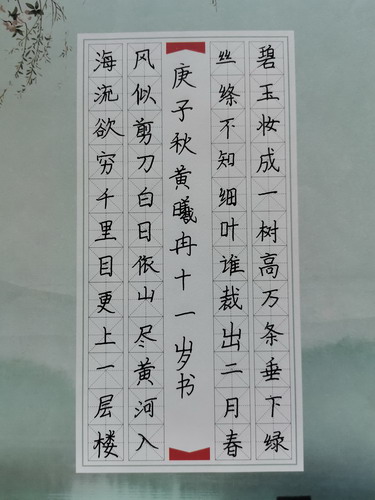 碧玉妆成一树高万条垂下绿
丝绦不知细叶谁裁出二月春
庚子秋黄曦冉十一岁书
风似剪刀白日依山尽黄河入
海流欲穷千里目更上一层楼